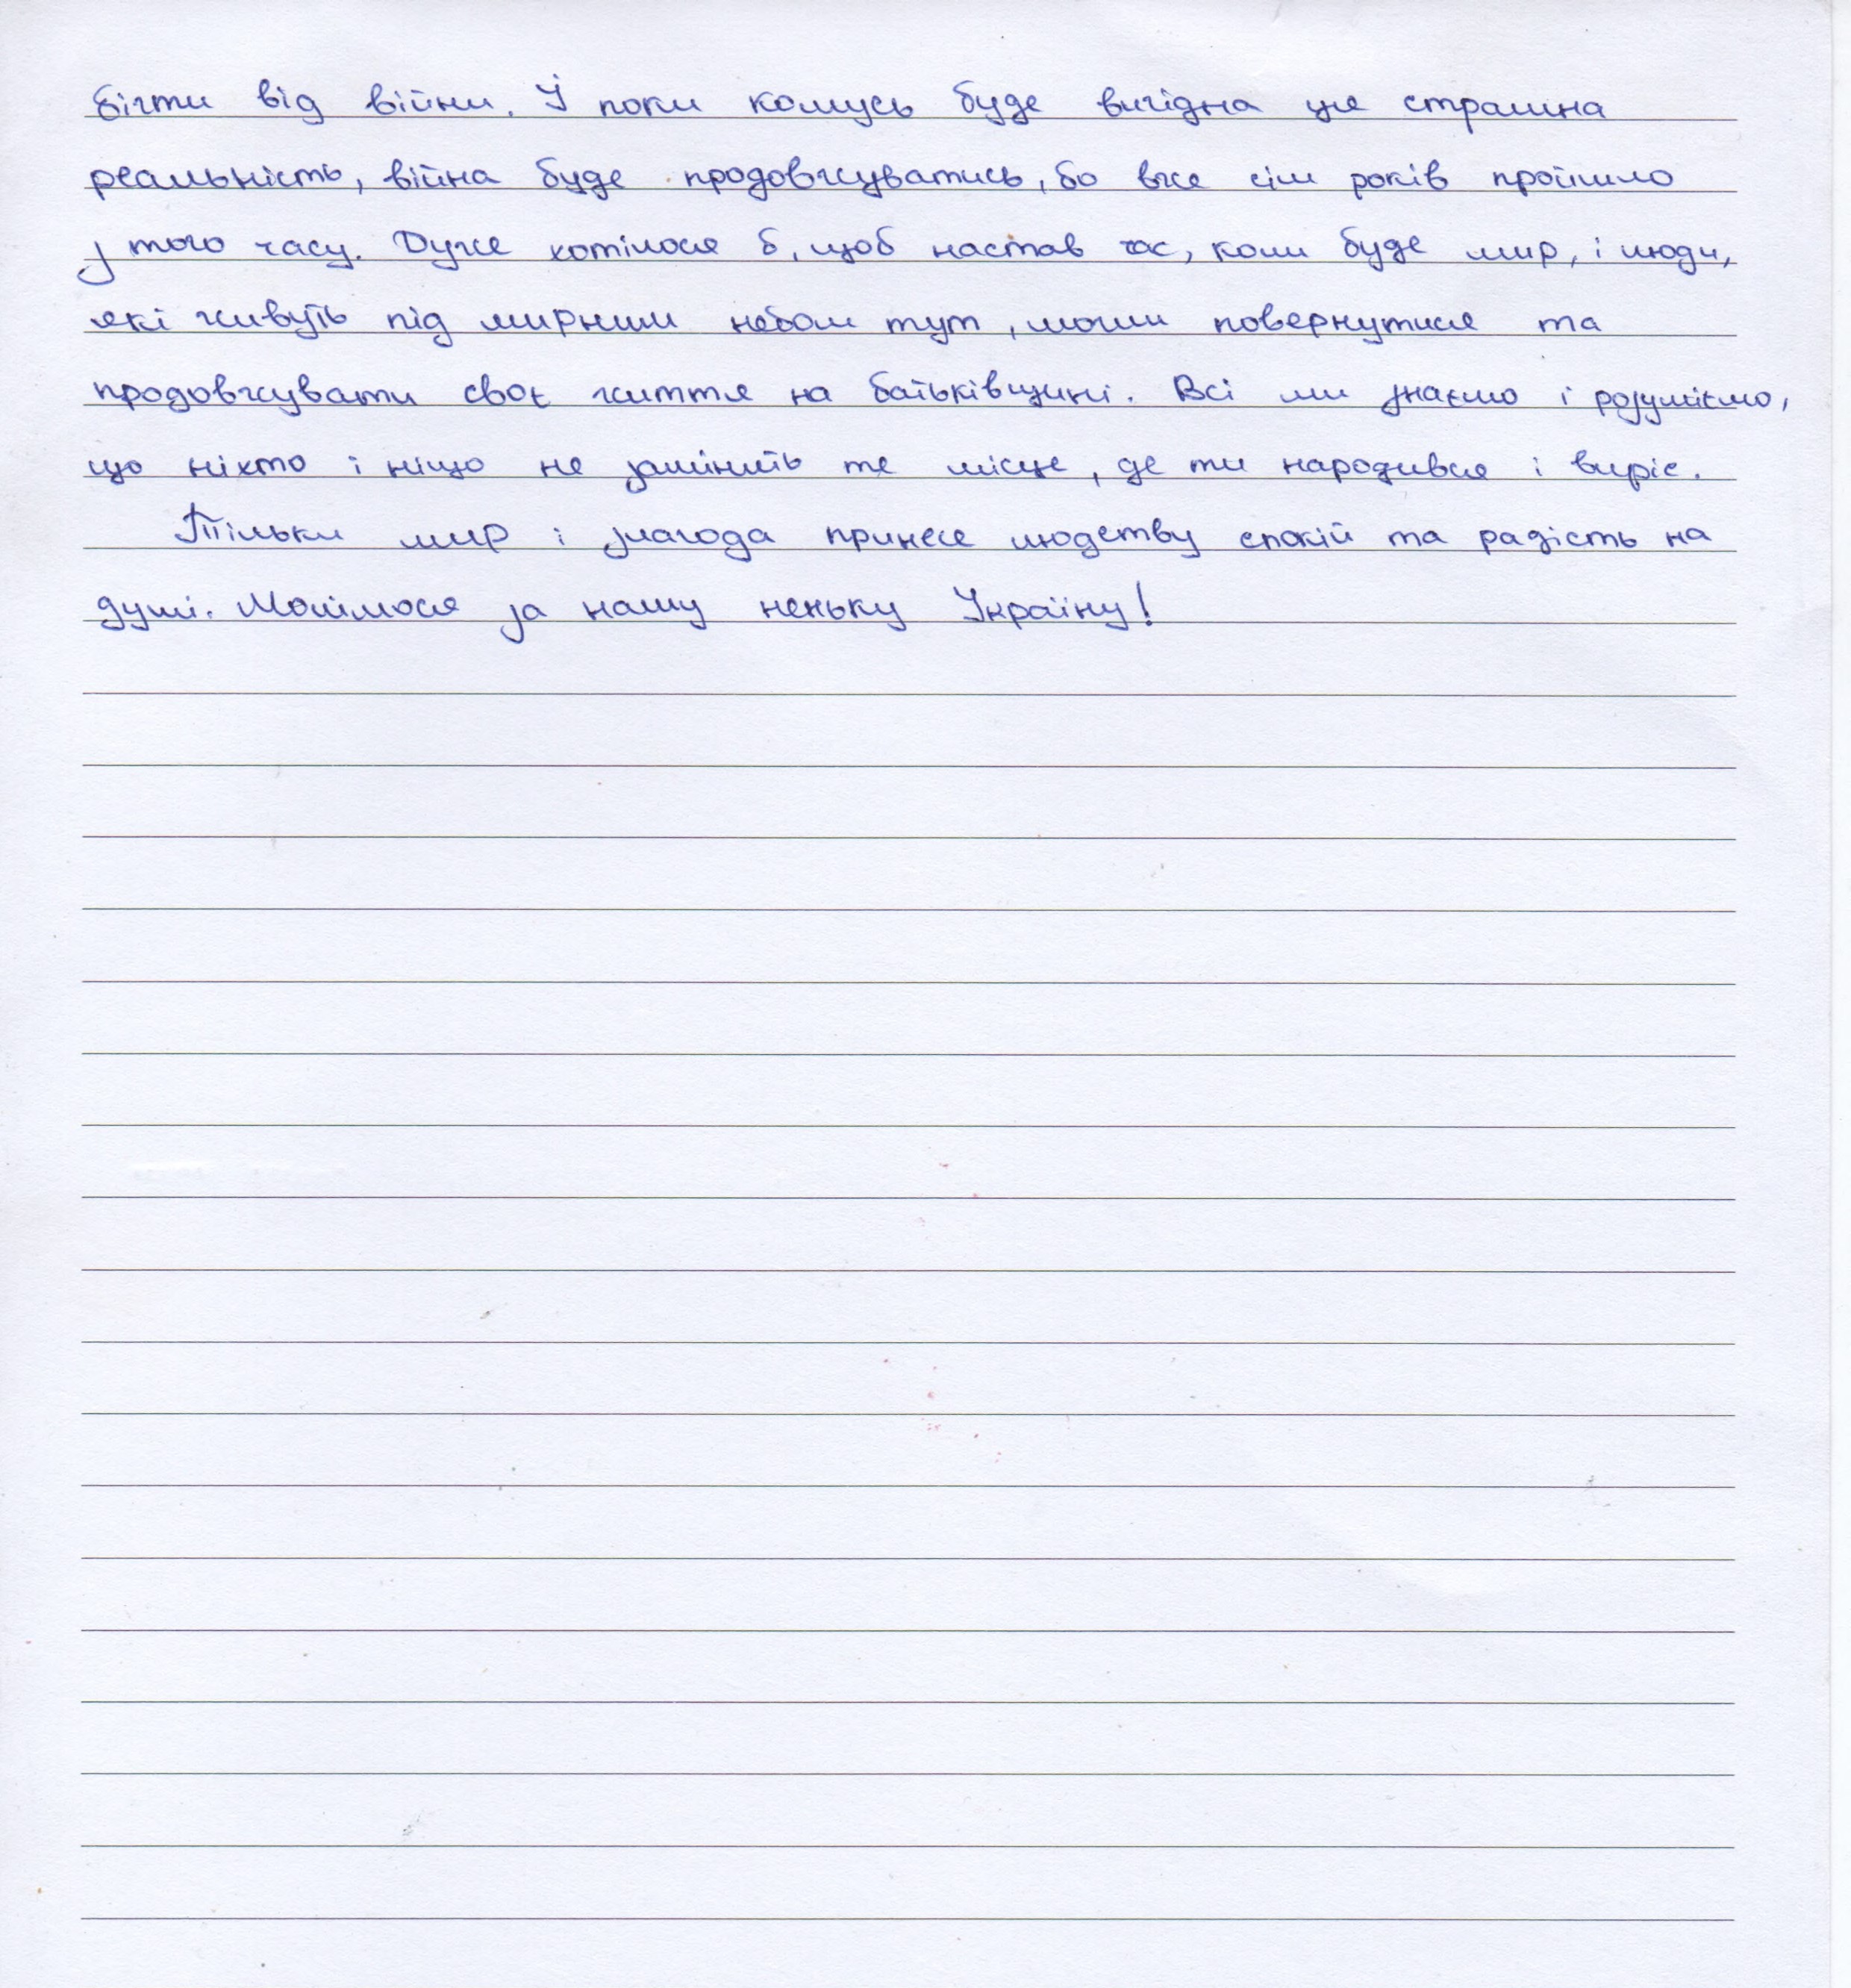 бігти від війни. І поки комусь буде вигідна ця страшна
реальність, війна буде продовжуватись, бо вже сім років пройшло
з того часу. Дуже хотілося б, щоб настав час, коли буде мир, і люди,
які живуть під мирним небом тут, могли повернутися та
продовжувати своє життя на батьківщині. Всі ми знаємо і розуміємо,
що ніхто і ніщо не замінить те місце, де ти народився і виріс.
Тільки мир і злагода принесе людству спокій та радість на
душі. Молімося за нашу неньку Україну!